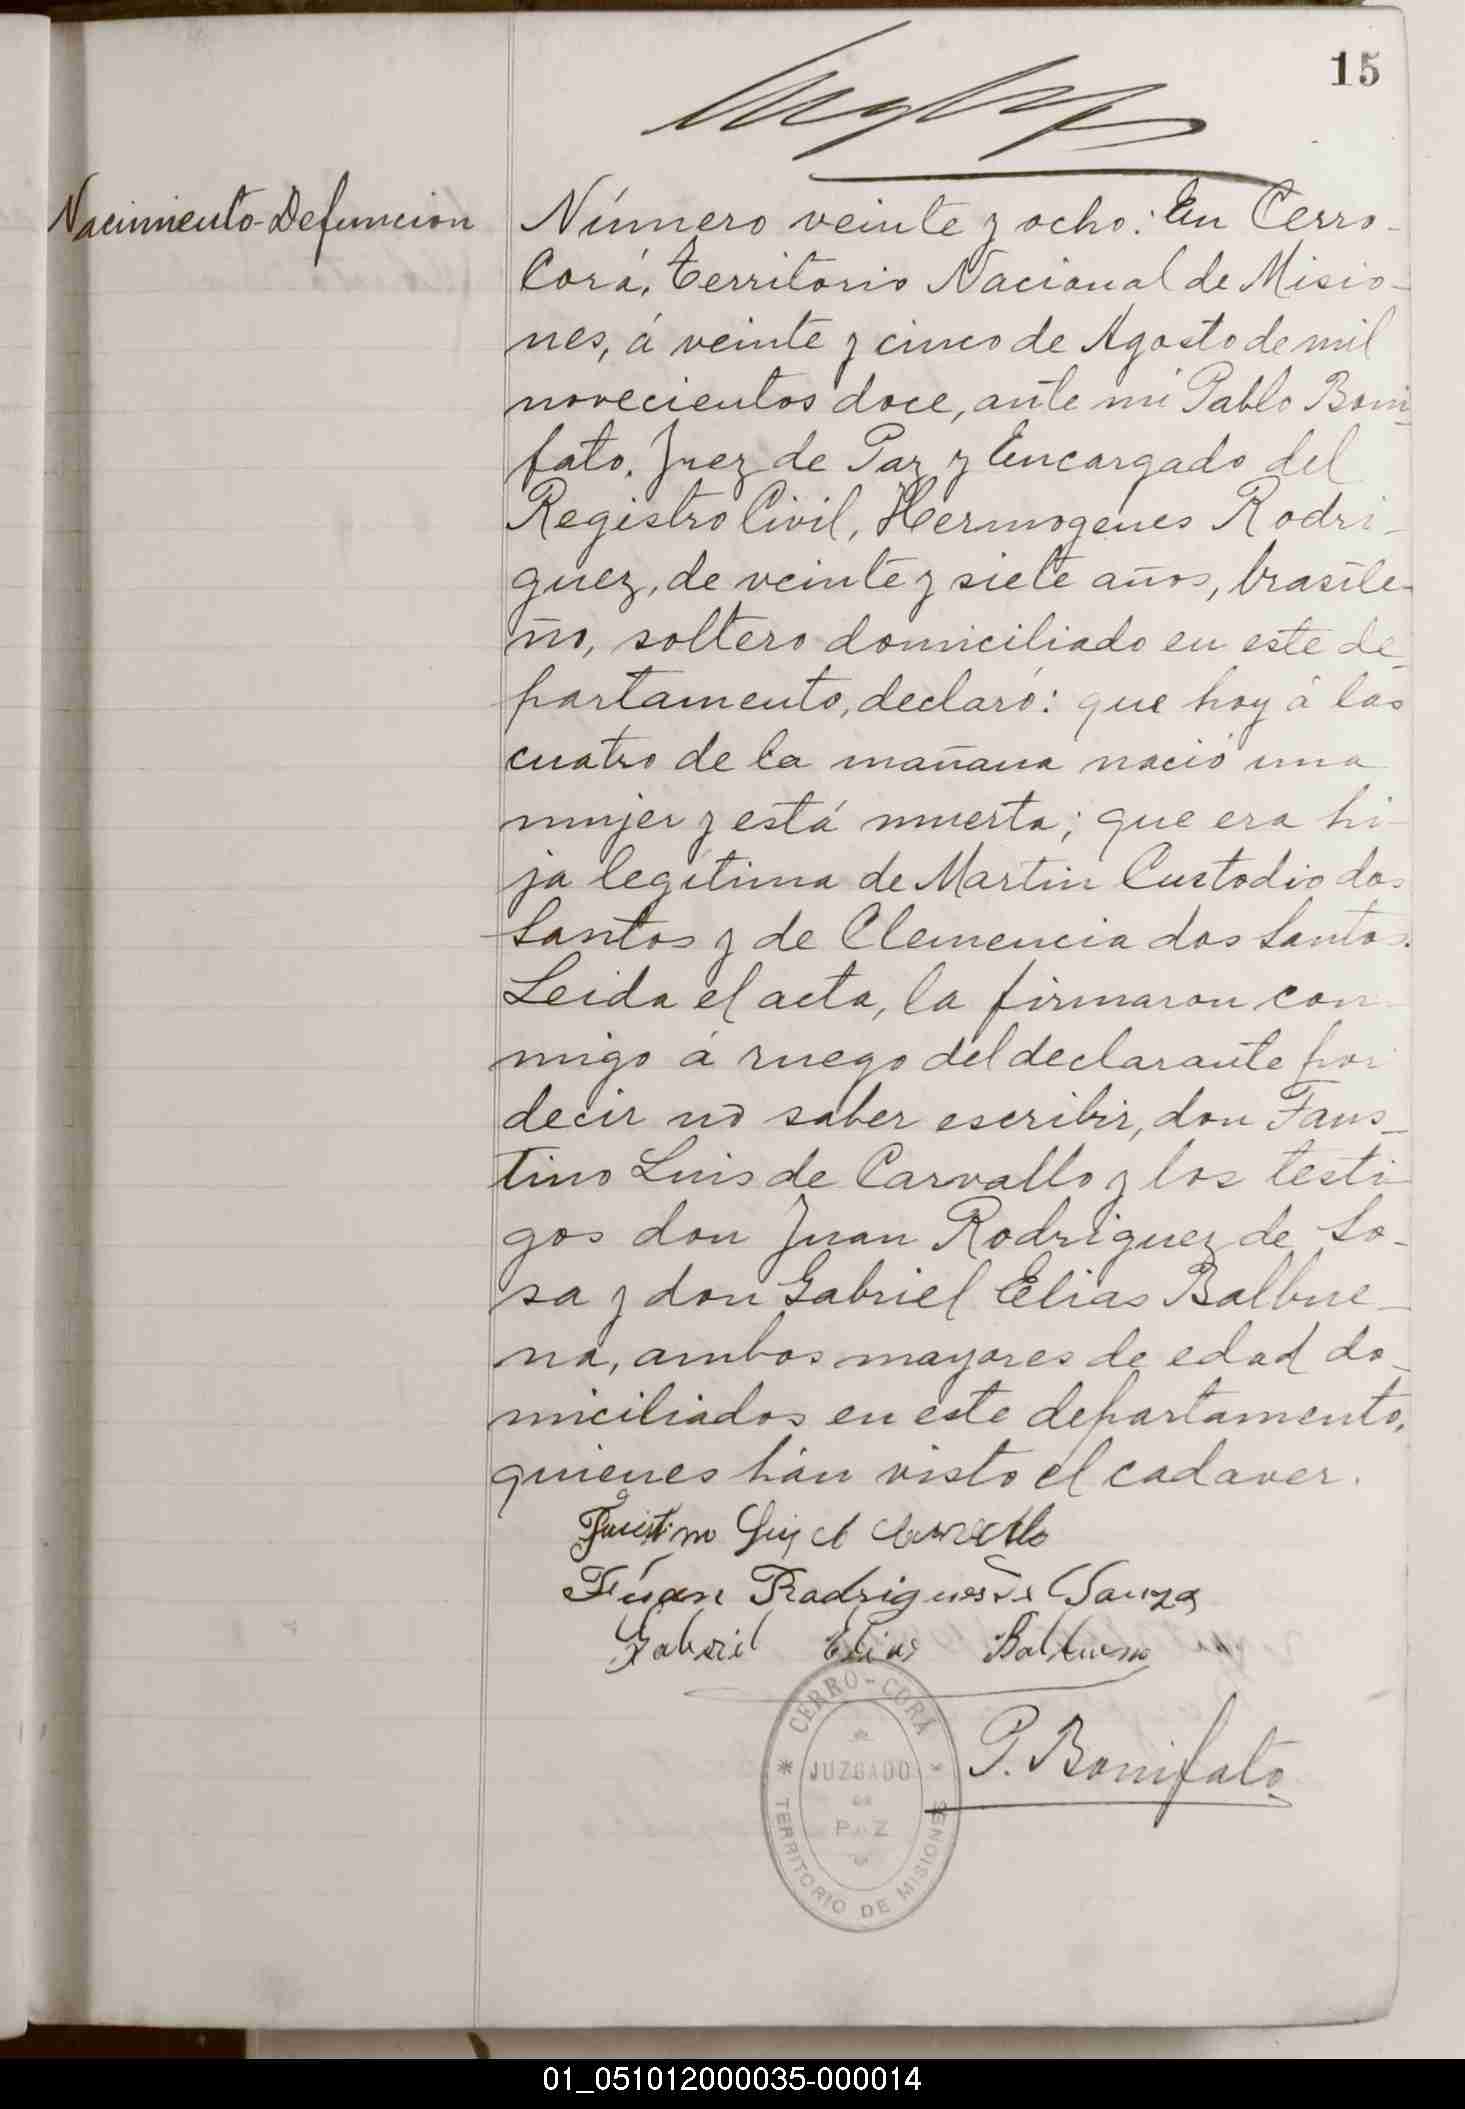 15
Nacimiento-Defuncion
Número veinte y ocho: En Cerro-
Corá, Territorio Nacional de Misio-
nes, á veinte y cinco de Agosto de mil
novecientos doce, ante mi Pablo Boni-
fato, Juez de Paz y Encargado del
Registro Civil, Hermogenes Rodri-
guez, de veinte y siete años, brasile-
ño, soltero domiciliado en este de-
partamento, declaró: que hoy á las
cuatro de la mañana nació una
mujer y está muerta; que era hi-
ja legitima de Martin Custodio dos
Santos y de Clemencia dos Santos.
Leida el acta, la firmaron con-
migo á ruego del declarante por
decir no saber escribir, don Faus-
tino Luis de Carvallo y los testi-
gos don Juan Rodriguez de So-
sa y don Gabriel Elias Balbue-
na, ambos mayores de edad do-
miciliados en este departamento,
quienes hán visto el cadaver.
Juan Rodrigues de Souza
Gabriel Elias Balbuena
P. Bonifato
CERRO-CORÁ
JUZGADO
DE
PAZ
* TERRITORIO DE MISIONES *
01_051012000035-000014